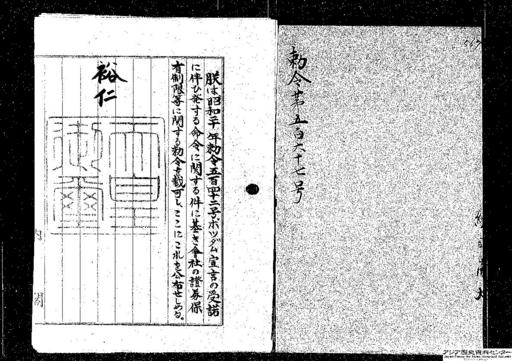 勅令第五百六十七号
朕は昭和二十年勅令五百四十二号ポツダム宣言の受諾
に伴ひ発する命令に関する件に基き会社の證券保
有制限等に関する勅令を裁可し、ここにこれを公布せしめる。
裕仁
天皇御璽
内閣
アジア歴史資料センター